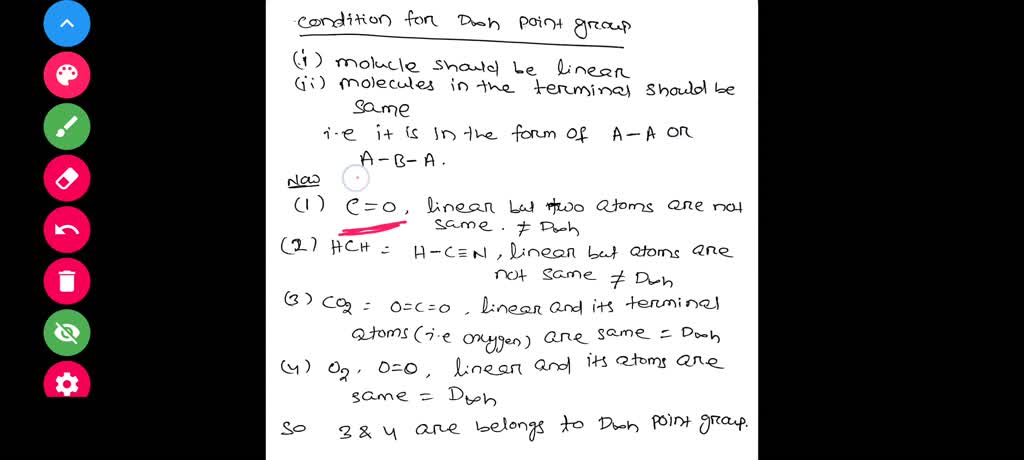 condition for D∞h point group
(i) molucle should be linear
(ii) molecules in the terminal should be
same
i.e it is in the form of A-A or
A-B-A.
Now
(1) C=O, linear but two atoms are not
same. ≠ D∞h
(2) HCH = H-C≡N, linear but atoms are
not same ≠ D∞h
(3) CO2 = O=C=O, linear and its terminal
atoms (i.e oxygen) are same = D∞h
(4) O2, O=O, linear and its atoms are
same = D∞h
so 3 & 4 are belongs to D∞h point group.